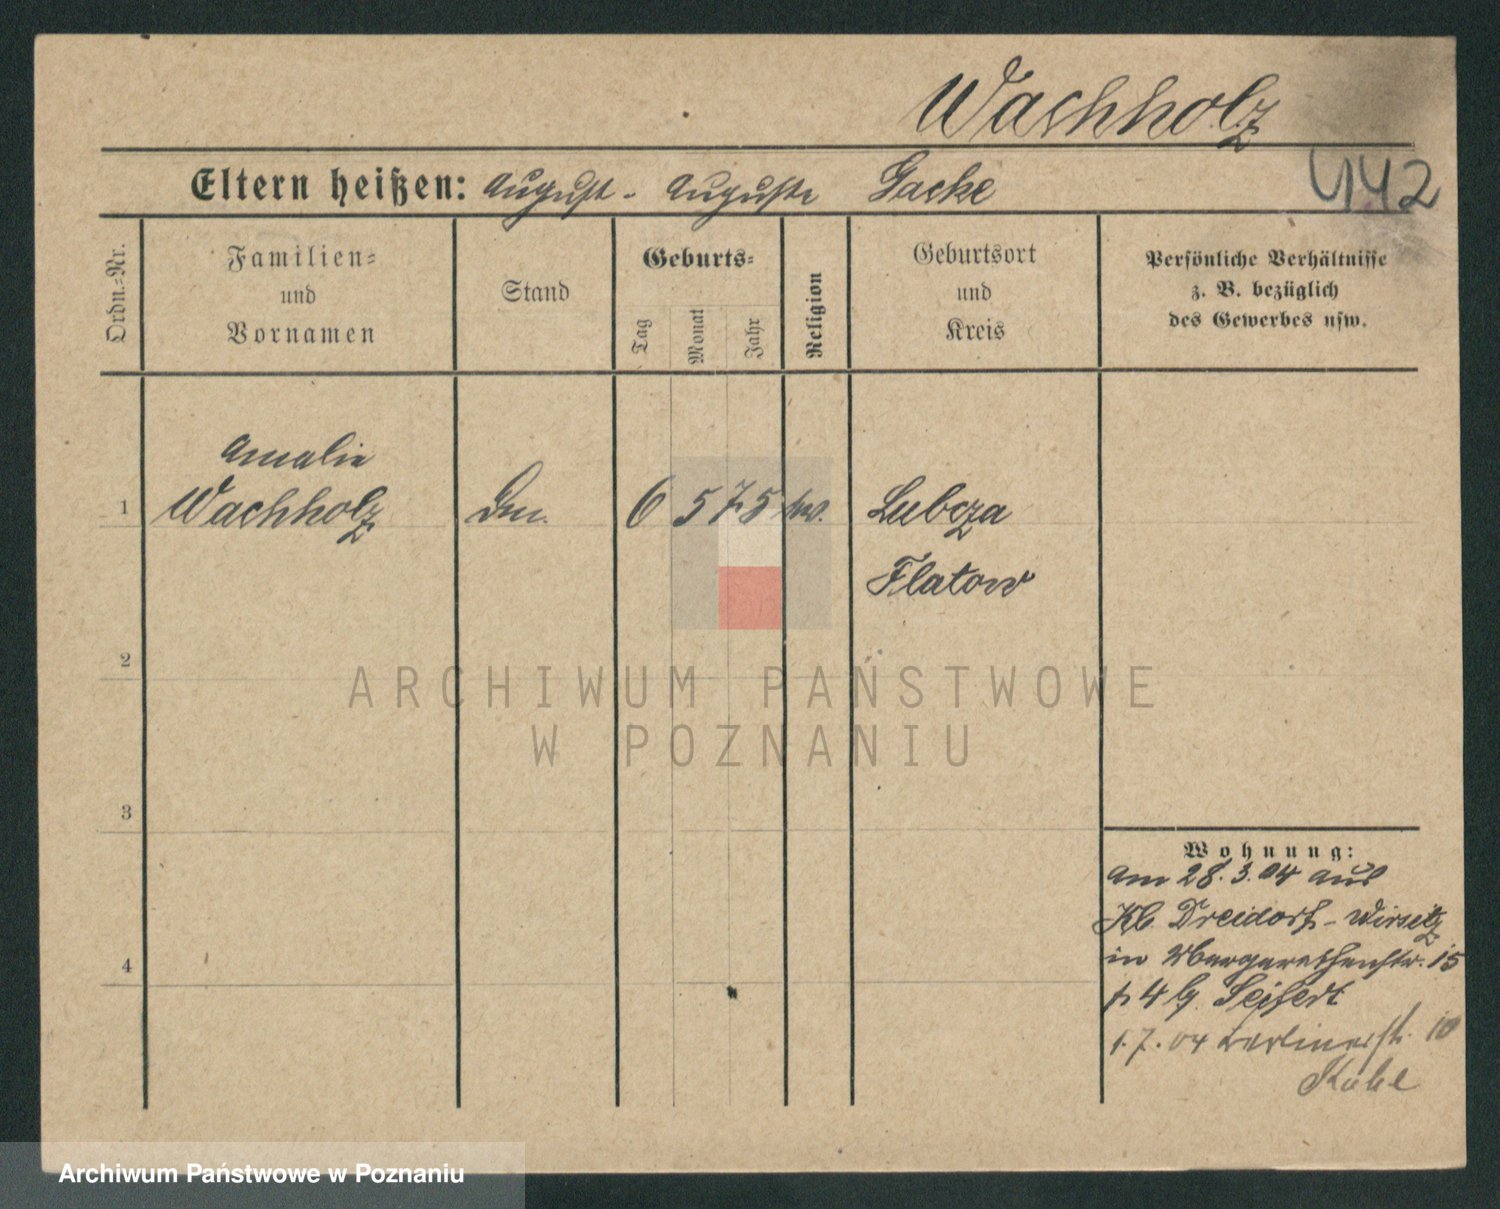 Wachholz
442
Eltern heißen: August - Auguste Gacke
Ordn.-Nr.
Familien-
und
Vornamen
Stand
Geburts-
Tag
Monat
Jahr
Religion
Geburtsort
und
Kreis
Persönliche Verhältnisse
z. B. bezüglich
des Gewerbes usw.
Amalie
1 Wachholz 6 5 75 Lubcza
Flatow
2
3
4
Wohnung:
am 28.3.04 aus
Kl. Dreidorf - Wirsitz
in Margarethenstr. 15
Seifert
1.7.04 Berlinerstr. 10
ARCHIWUM PAŃSTWOWE
W POZNANIU
Archiwum Państwowe w Poznaniu